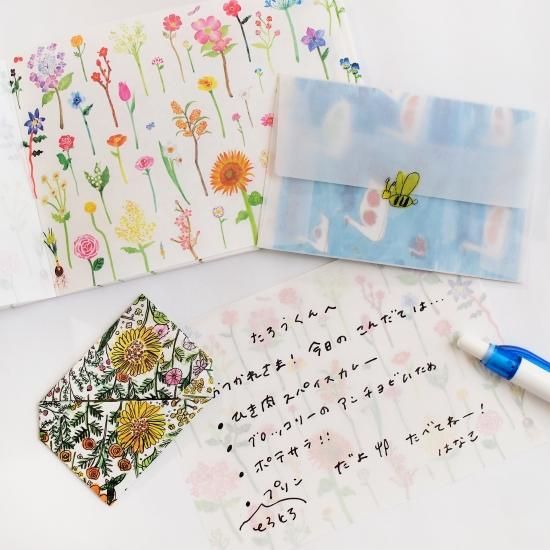 たろうくんへ
おつかれさま！ 今日の こんだては…
• ひき肉 スパイスカレー
• ブロッコリーの アンチョビいため
• ポテサラ！！
• プリン
とろとろ
だよ 卵 たべてねー！
はなこ